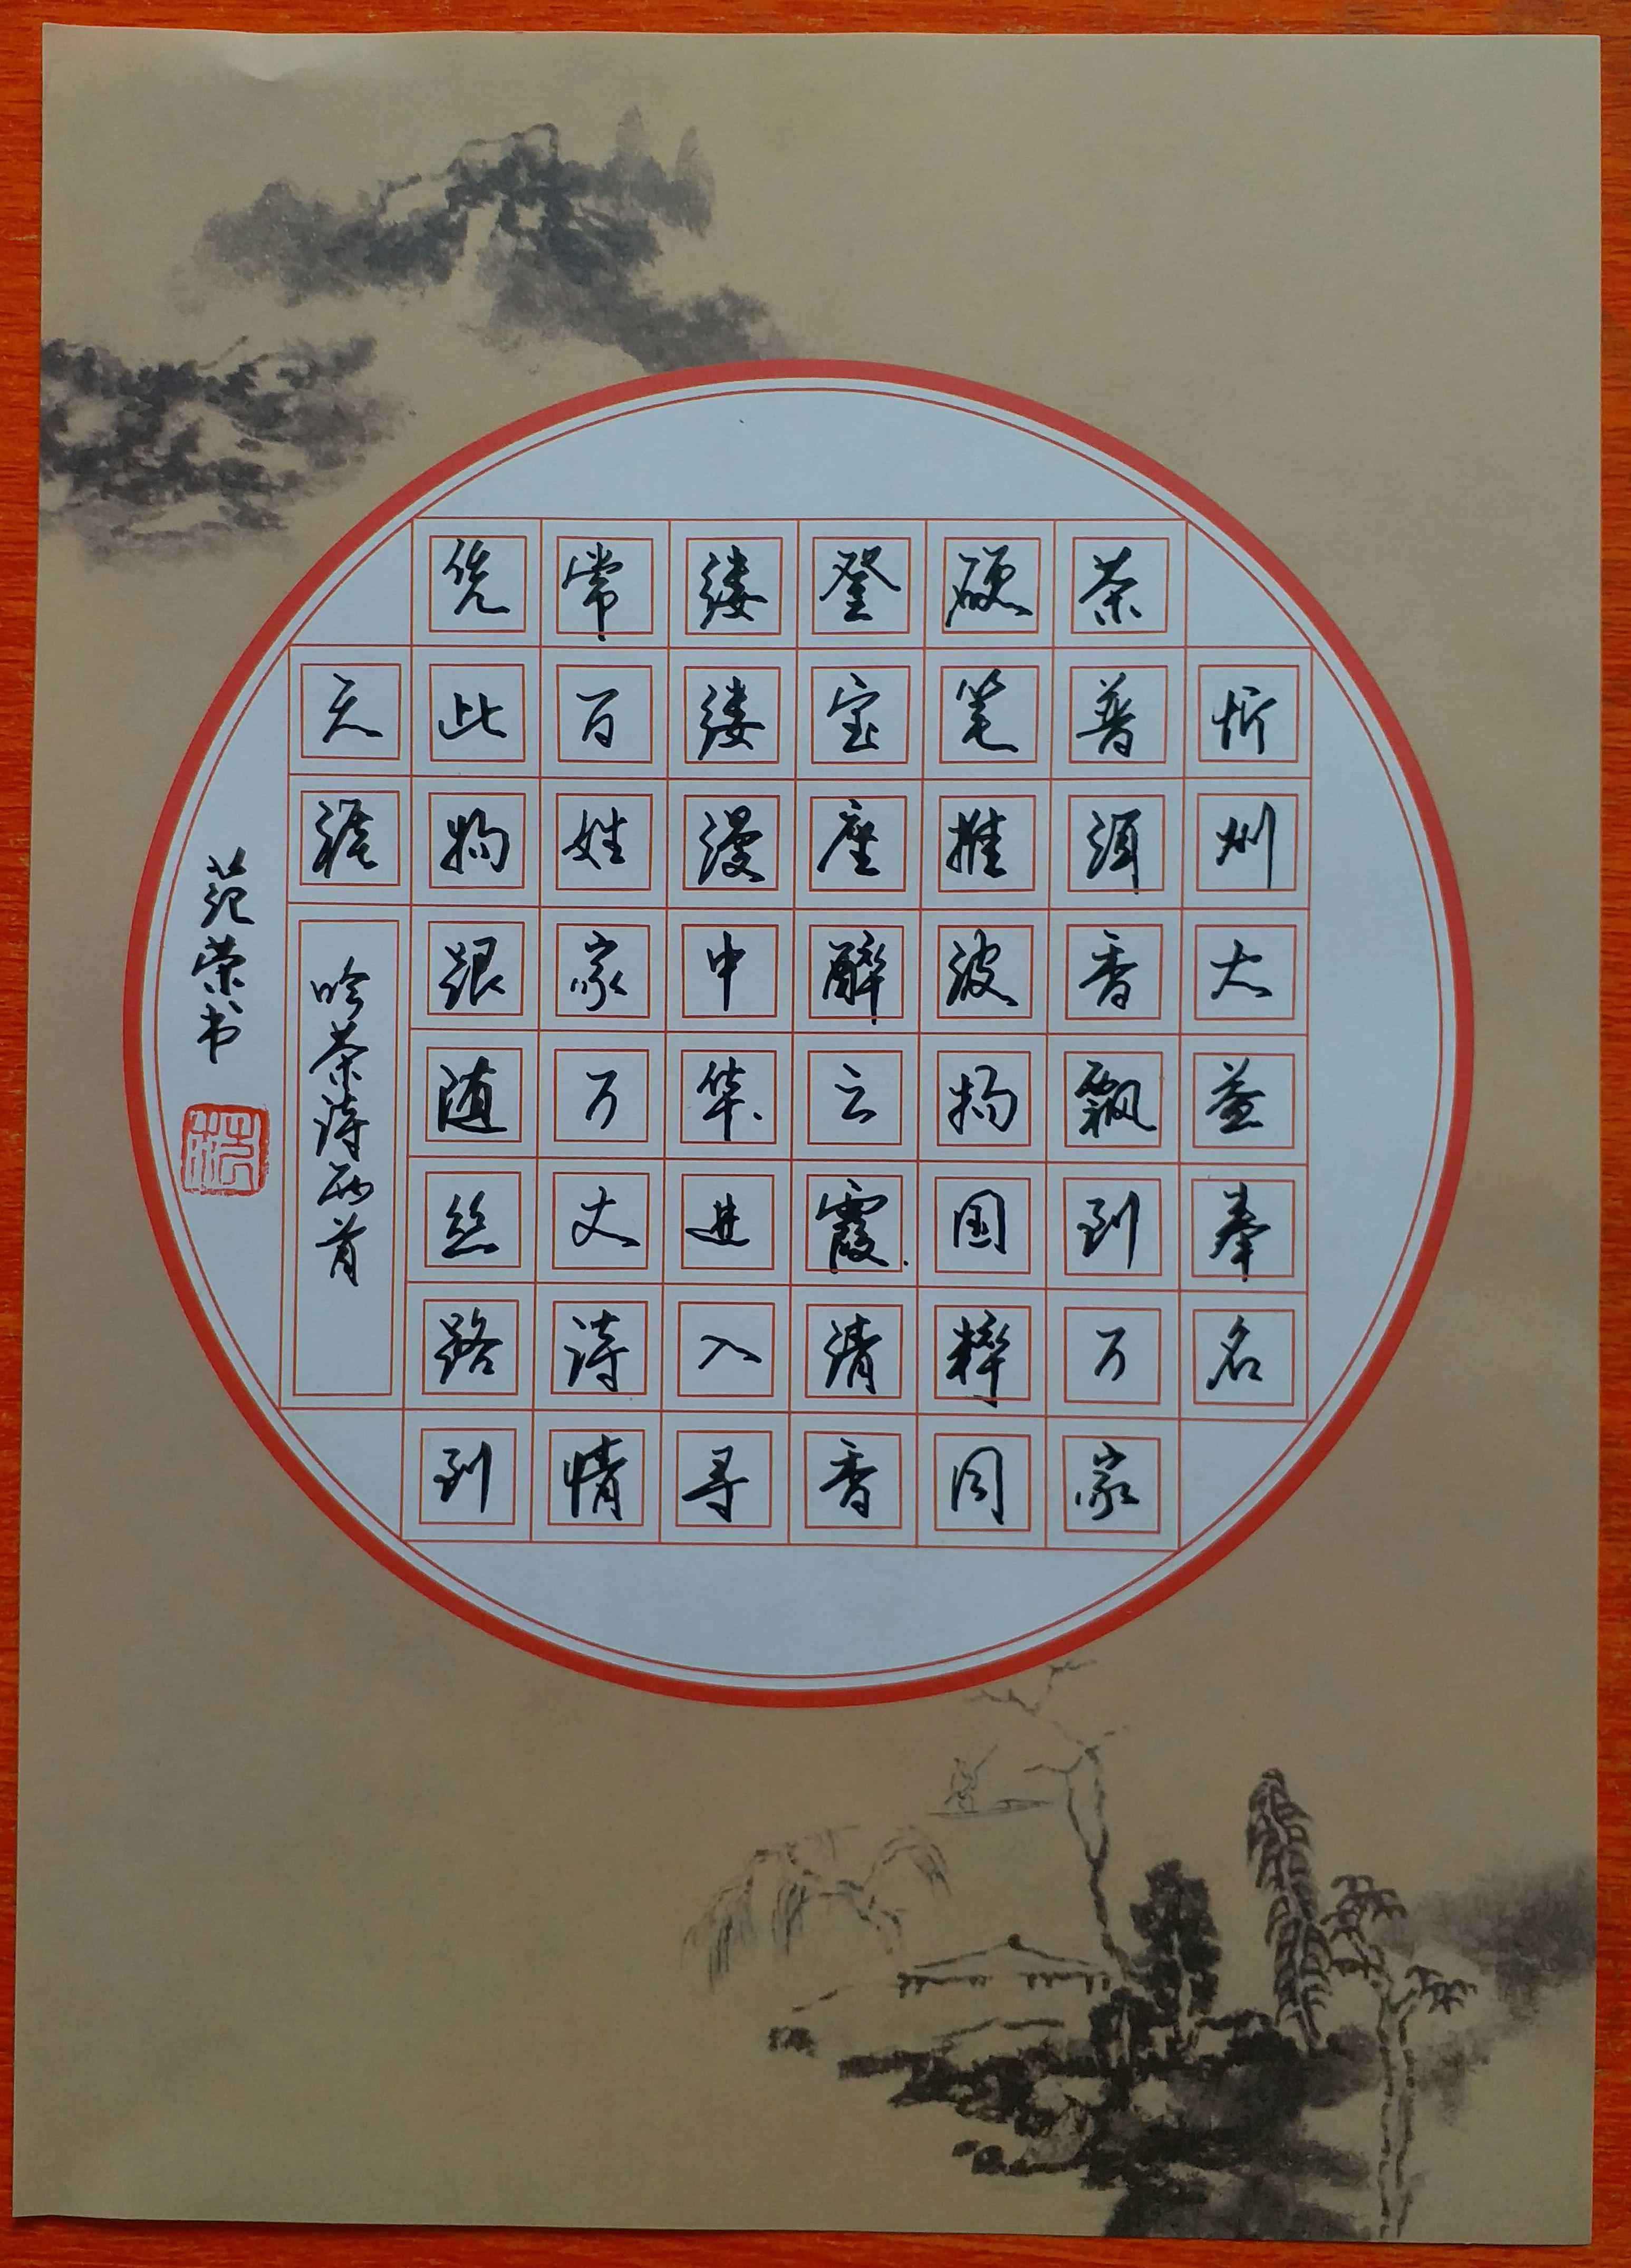 忻州大益奉名
茶普洱香飘到万家
硬笔推波扬国粹同
登宝座醉云霞清香
缕缕漫中华进入寻
常百姓家万丈诗情
凭此物跟随丝路到
天涯
吟茶诗两首
范荣书